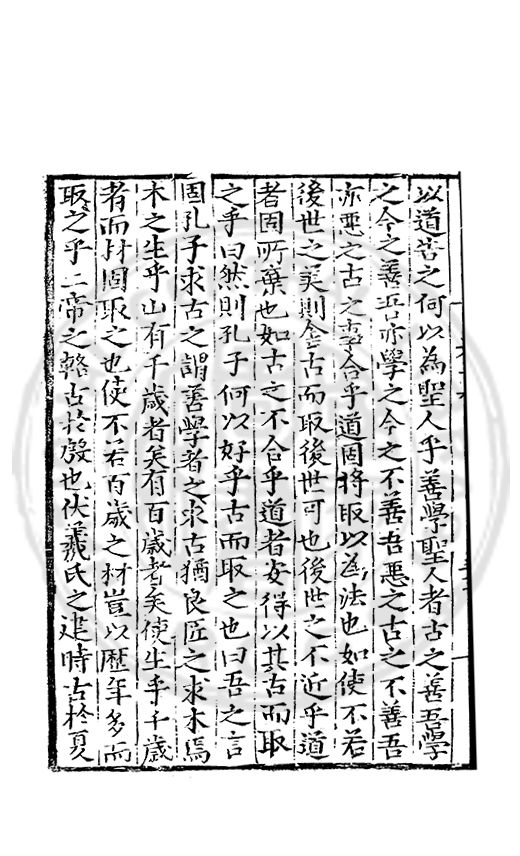 以道告之何以為聖人乎善學聖人者古之善吾學
之今之善吾亦學之今之不善吾惡之古之不善吾
亦惡之古之事合乎道固將取以為法也如使不若
後世之美則舍古而取後世可也後世之不近乎道
者固所棄也如古之不合乎道者安得以其古而取
之乎曰然則孔子何以好乎古而取之也曰吾之言
固孔子求古之謂善學者之求古猶良匠之求木焉
木之生乎山有千歲者矣有百歲者矣使生乎千歲
者而材固取之也使不若百歲之材豈以歷年多而
取之乎二帝之輅古於殷也伏羲氏之建時古於夏